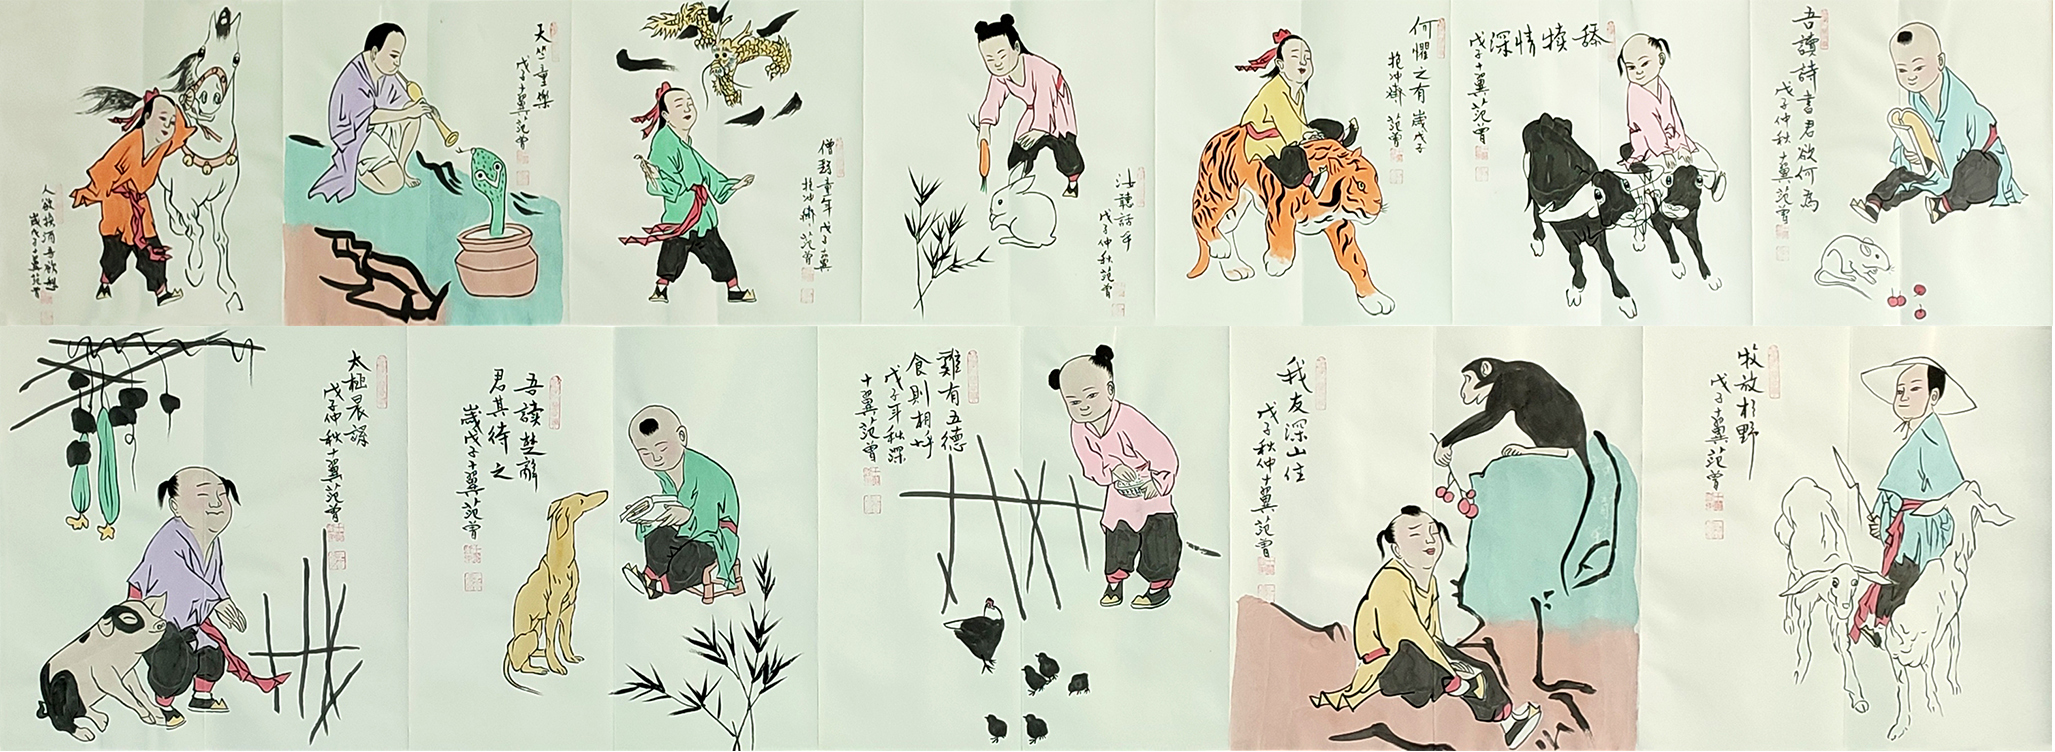 人欲挨酒吾欲無
歲戊子十翼范曾
天竺童樂
戊子十翼范曾
僧繇童年戊子十翼
抱冲齋范曾
汝聽話乎
戊子仲秋范曾
何懼之有歲戊子
抱冲齋范曾
舔犢情深
戊子十翼范曾
吾讀詩書君欲何為
戊子仲秋十翼范曾
太極晨課
戊子仲秋十翼范曾
吾讀楚辭
君其待之
歲戊子十翼范曾
雞有五德
食則相呼
戊子年秋深
十翼范曾
我友深山住
戊子秋仲十翼范曾
牧放於野
戊子十翼范曾